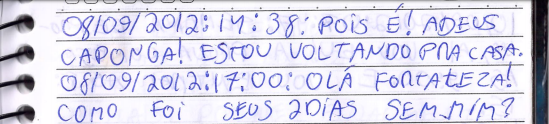 08/09/2012:14:38: POIS É! ADEUS
CAPONGA! ESTOU VOLTANDO PRA CASA.
08/09/2012:17:00: OLÁ FORTALEZA!
COMO FOI SEUS 2DIAS SEM MIM?